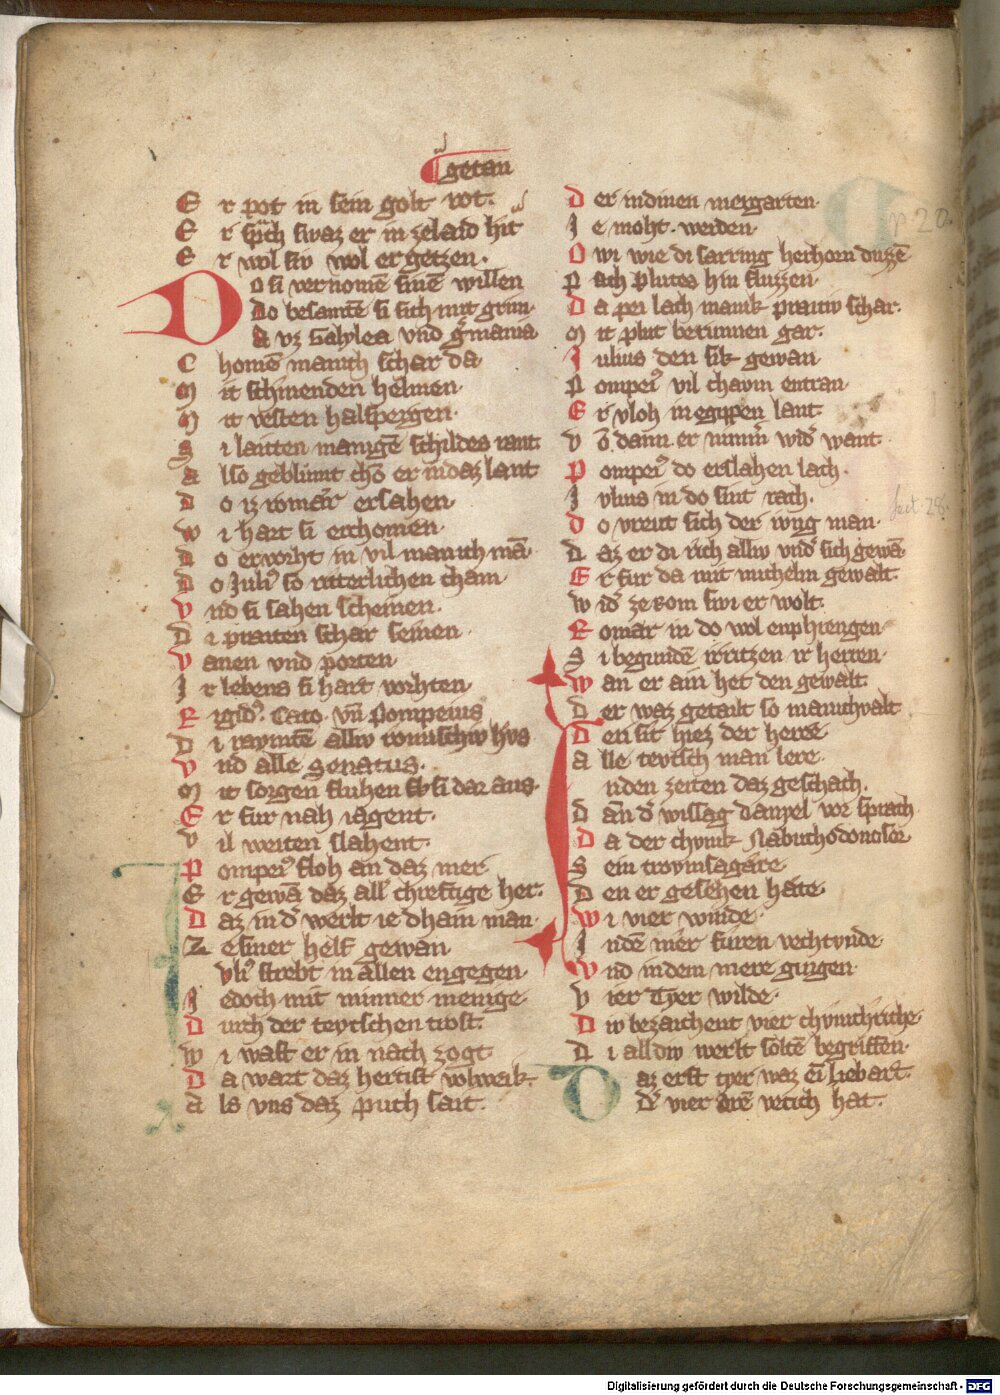 getan
Er pot in sein golt rot.
Er sp̃ch swaz er in ze laid hit
Er wol siv wol ergetzen.
Do si vernomē sinē willen
Do besamtē si sich mit grim.
Da vz Galylea vnd gͤmania
Chomē manich schar da
Mit schinenden helmen.
Mit vesten halspergen.
Si lauten manigē schildes rant
Also geblůmt chō er in daz lant
Do iz romær ersahen.
Wi hart si erchomen.
Do ervorht in vil manich mā.
Do Juliꝰ so ritterlichen cham
Vnd si sahen scheinen.
Di praiten schar seinen
Vanen vnd porten
Ir lebens si hart vorhten.
Rigidꝰ. Cato. vn̄ Pompeius
Di raymtē alliv romischiv hvs
Vnd alle Senatus.
Mit sorgen fluhen si dar aus.
Er fur nah iagent.
Vil weiten slahent.
Pompeiꝰ floh an daz mer
Er gewā daz allꝰ chreftige her.
Daz in dͤ werlt ie dhain man.
Ze siner helf gewan
vliꝰ strebt in allen engegen.
Jedoch mit minner menige.
Durch der teytschen trost.
Wi vast er in nach zogt
Da wart daz hertist volcwik.
Als vns daz puch sait.
Der in dinen mergarten.
Je moht werden.
Owi wie di sarring herhorn duzzē
Pach plutes hin fluzzen.
Da pei lach manik praitiv schar.
Mit plut berunnen gar.
Julius den sik gewan
Pompeiꝰ vil chavm entran.
Er vloh in egippen lant.
Vō dann er nimmͤ widͤ want
Pompeiꝰ do erslahen lach.
Jvlius in do sint rach.
Do vreut sich der ivng man.
Daz er di rich alliv vndͤ sich gewā
Er fur da mit michelm gewalt.
Widͤ ze rom swi er wolt.
Romær in do wol enphiengen
Si begundē irritzen ir herren.
Wan er ain het den gewalt
Der waz getailt so manichvalt
Den sit hiez der herre
Alle teytsch man lere.
nden zeiten daz geschach.
Dan dͤ wissag Danyel vor sprach
Da der chvnik Nabuchodonosor
Sein trovm sagäre
Den er gesehen hate.
Wi vier winde.
Indē mer furen vechtvnde
Vnd in dem mere gingen.
Vier Tyer wilde.
Div bezaichent vier chvnichriche
Di all div werlt soltē begriffen.
Daz erst tyer waz eī liebart.
Dͤ vier arē vetich hat.
p 20.
Digitalisierung gefördert durch die Deutsche Forschungsgemeinschaft - DFG